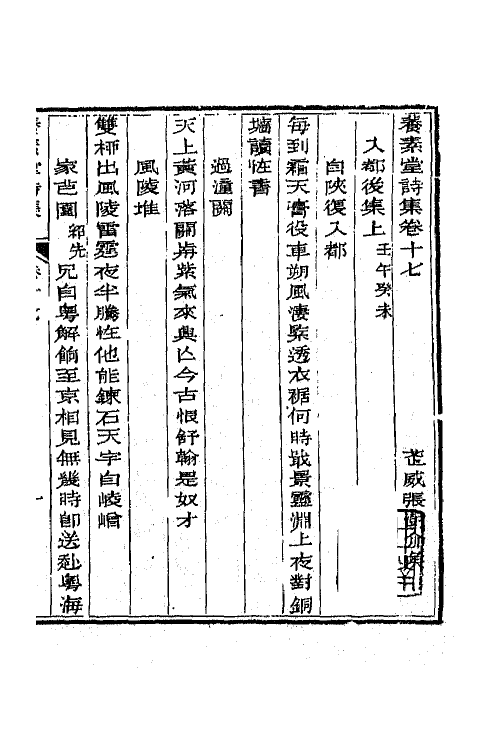 養素堂詩集卷十七 武威張
入都後集上 壬午癸未
自陝復入都
每到霜天賫役車朔風凄緊透衣裾何時戢景靈淵上夜對銅
墻讀恠書
過潼關
天上黃河落關歬紫氣來興亡今古恨舒翰是奴才
風陵堆
雙柳出風陵雷霆夜半騰恠他能鍊石天宇自崚嶒
家芭園 先 兄自粵解餉至京相見無幾時即送赴粵海
養素堂詩集 卷十七 一